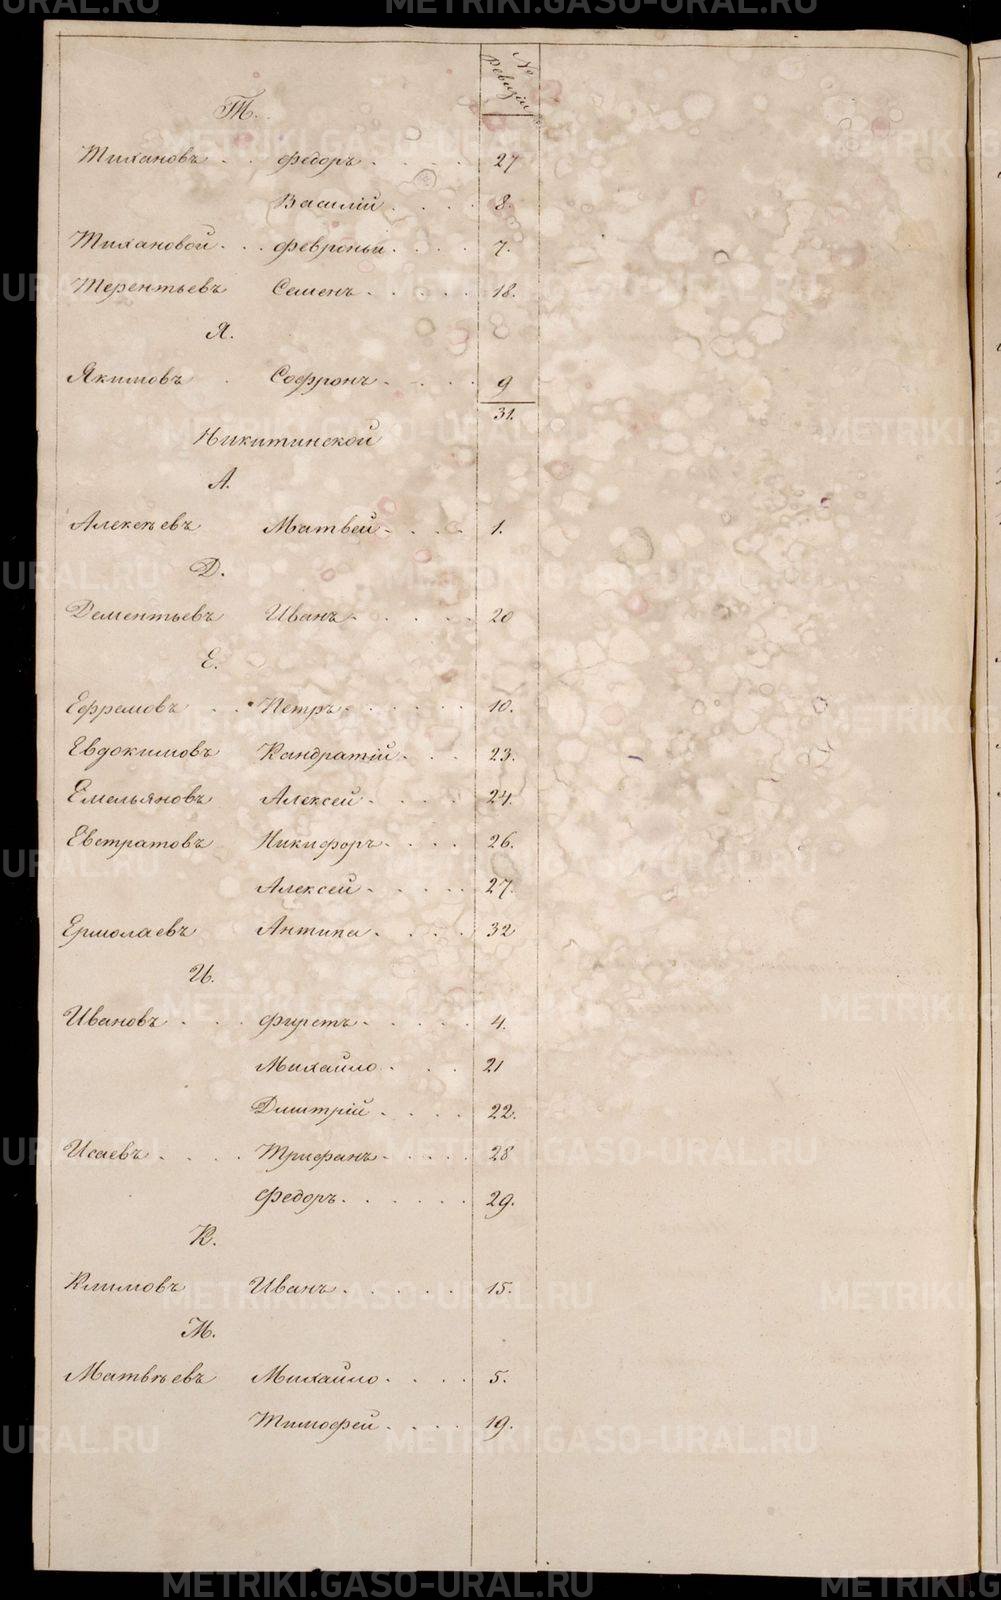 № Ревизіи
Т.
Тихановъ . . Федоръ . . . . 27
Василій . . . . 8.
Тихановой . . . Февроньи . . . . 7.
Терентьевъ Семенъ . . . . . 18.
Я.
Якимовъ . Софронъ . . . . 9
31.
Никитинской
А.
Алексѣевъ Матвей . . . . 1.
Д.
Дементьевъ Иванъ . . . . . 20
Е.
Ефремовъ . . Петръ . . . . . . 10.
Евдокимовъ Кандратій . . . 23.
Емельяновъ Алексей . . . . 24.
Евстратовъ Никифоръ . . . . 26.
Алексей . . . . . 27.
Ермолаевъ Антипа . . . . 32
И.
Ивановъ . . . Фирстъ . . . . . 4.
Михайло . . . 21
Дмитрій . . . . 22.
Исаевъ . . . . Трифанъ . . . . . 28
Федоръ . . . . . . 29.
К.
Климовъ Иванъ . . . . . 15.
М.
Матвѣевъ Михайло . . . . 5.
Тимофей . . . . 19.
METRIKI.GASO-URAL.RU